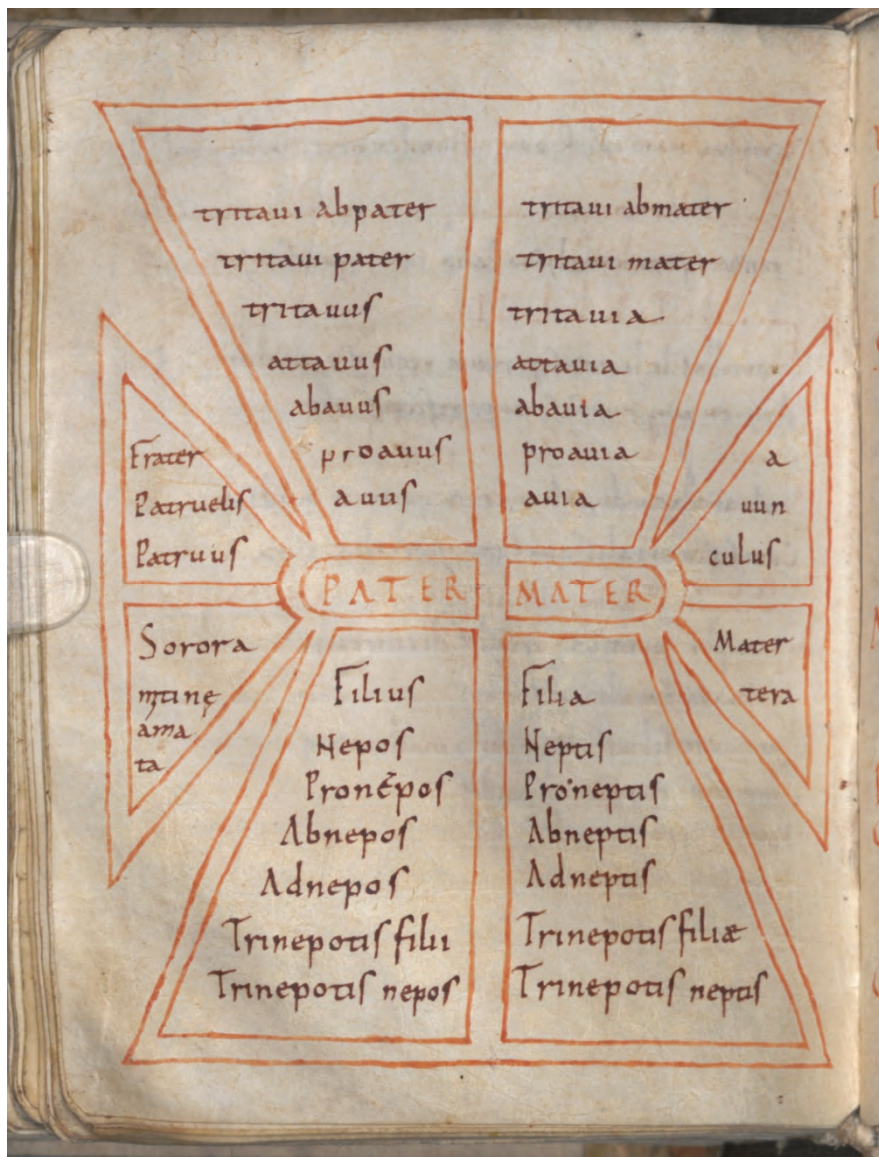 tritaui abpater
tritaui pater
tritauus
attauus
abauus
proauus
auus
tritaui abmater
tritaui mater
tritauia
attauia
abauia
proauia
auia
Frater
Patruelis
Patruus
a
uun
culus
PATER
MATER
Sorora
mitinę
ama
ta
Mater
tera
Filius
Nepos
Pronepos
Abnepos
Adnepos
Trinepotis filii
Trinepotis nepos
Filia
Neptis
Proneptis
Abneptis
Adneptis
Trinepotis filiæ
Trinepotis neptis